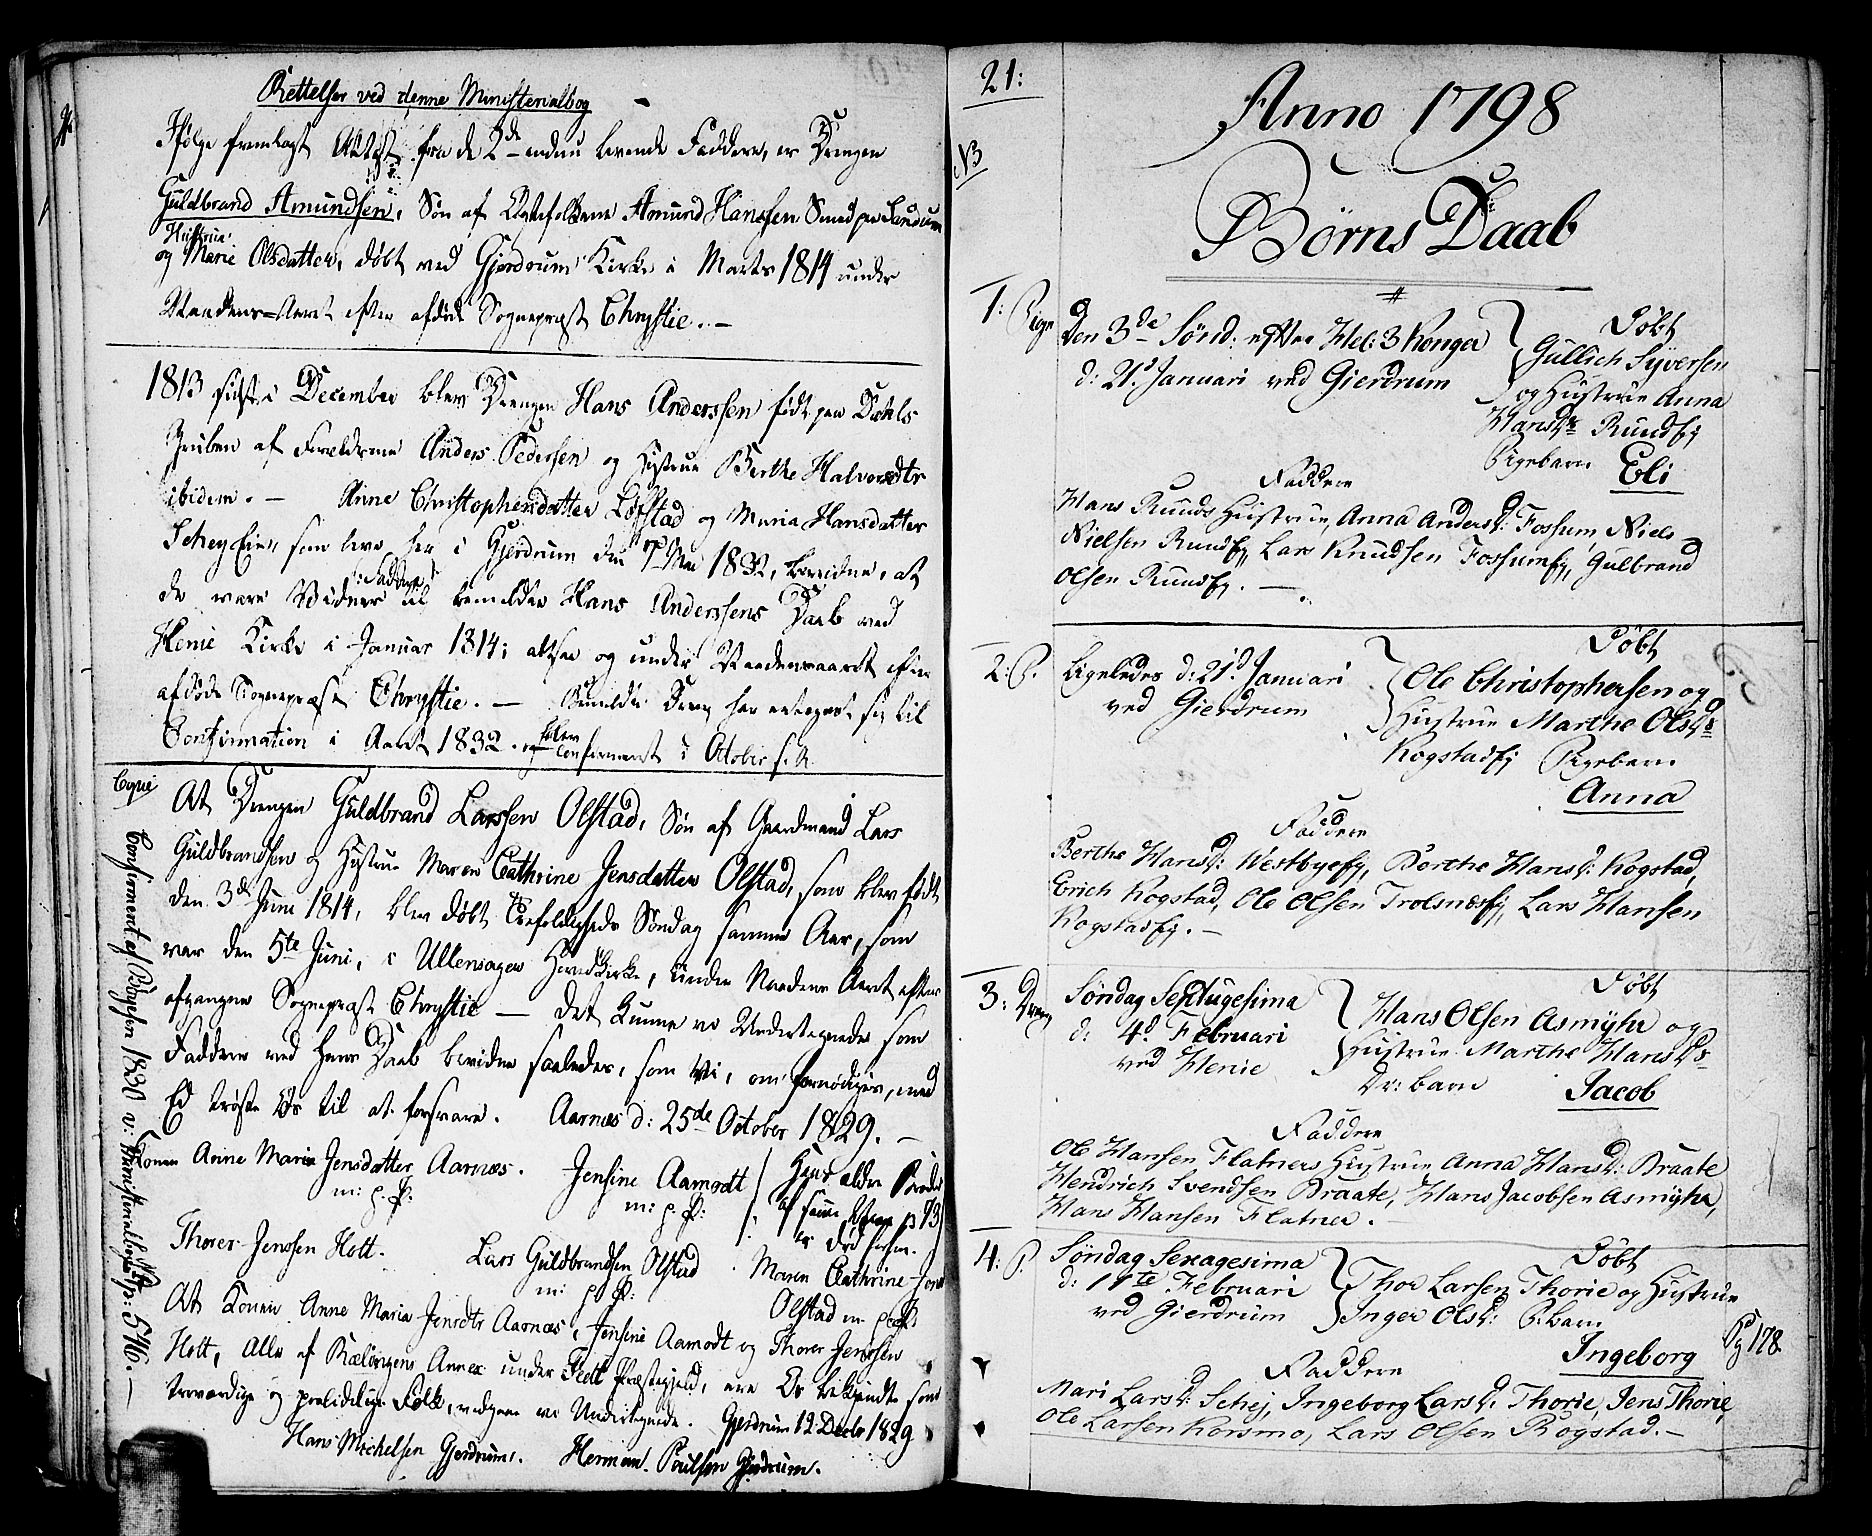 Rettelser ved denne Ministerialbog
Ifølge fremlagt Attest fra de 2de endnu levende Faddere, er Drengen
Guldbrand Amundsen, Søn af Ægtefolkene Amund Hanssen Smed paa
Hustrue
og Marie Olsdatter, døbt ved Gjerdrum Kirke i Marts 1814 under
Naadens-Aaret efter afdøde Sognepræst Chrystie. —
1813 sidst i December blev Drengen Hans Anderssen født paa Dahls
Gruben af Forældrene Anders Pedersen og Hustrue Berthe Halvorsdtr
ibidem. — Anne Christophersdatter Løfstad og Maria Hansdatter
Schey Eie, som leve her i Gjerdrum den 7de Mai 1832, bevidne, at
:Faddere:
de vare Vidner til bemeldte Hans Anderssens Daab ved
Henie Kirke i Januar 1814; altsaa og under Naadensaaret efter
afdøde Sognepræst Chrystie. — Bemeldte Dreng har antaget sig til
Confirmation i Aaret 1832. og blev confirmeret i Octobr s. A.
Copie
At Drengen Guldbrand Larssen Olstad, Søn af Gaardmand Lars
Guldbrandsen og Hustrue Maren Cathrine Jensdatter Olstad, som blev født
den 3de Juni 1814, blev døbt Trefoldigheds Søndag samme Aar, som
var den 5te Juni, i Ullensager Hoved Kirke, under Naadens Aaret efter
afgangne Sognepræst Chrystie — det kunne vi Undertegnede som
Faddere ved hans Daab bevidne saaledes, som vi, om fornødiges, med
Ed trøste Os til at forsvare. Aarnæs d: 25de October 1829. —
Konen Anne Maria Jensdatter Aarnæs. Jensine Aamodt
m: p: P: m: p: P:
Hans ældre Broder
af samme Navn p 73
er død
Thorer Jenssen Holt. Lars Guldbrandsen Olstad Maren Cathrine
m: p: P: Olstad m p P
At Konen Anne Maria Jensdtr Aarnæs, Jensine Aamodt og Thorer Jenssen
Holt, Alle af Rælingens Annex under Fedt Præstegjeld, ere Os bekjendte som
troværdige og paalidelige Folk, vedgaae vi Undertegnede. Gjerdrum 12 Decbr 1829
Hans Michelsen Gjerdrum. Herman Poulsen Gjerdrum.
Confirmeret af Boyesen 1830 v: Ministerialbogen p: 546. —
21:
No
Anno 1798
Børns Daab
1: Pige
Den 3de Sønd. efter Hel: 3 Konger
d: 21. Januari ved Gierdrum
Døbt
Gullich Syversen
og Hustrue Anna
Hansdr Rundfy
Pigebarn Eli
Faddere
Hans Ruuds Hustrue, Anna Andersd: Fossum, Niels
Nielsen Rundfy, Lars Knudsen Fossumfy, Gulbrand
Olsen Rundfy. —
2: P.
Ligeledes d: 21d Januari
ved Gierdrum
Døbt
Ole Christophersen og
Hustrue Marthe Olsdr
Kogstadfy Pigebarn
Anna
Faddere
Berthe Hansd: Westbyefy, Dorthe Hansd: Kogstad,
Erich Kogstad, Ole Olsen Trolsnæsfy, Lars Hansen
Kogstadfy. —
3: Dreng
Søndag Septugesima
d: 4d Februari
ved Henie
Døbt
Hans Olsen Asmyhr og
Hustrue Marthe Hansdr
Dr: barn
Jacob
Faddere
Ole Hansen Flatners Hustrue Anna Hansd: Braate
Hendrich Svendsen Braate, Hans Jacobsen Asmyhr,
Hans Hansen Flatner. —
4: P.
Søndag Sexagesima
d: 11te Februari
ved Gierdrum
Døbt
Thor Larsen Thorie og Hustrue
Inger Olsd: P: barn
Ingeborg
Pg 178
Faddere
Mari Larsd: Schej, Ingeborg Larsd: Thorie, Jens Thorie,
Ole Larsen Korsmo, Lars Olsen Rogstad. —